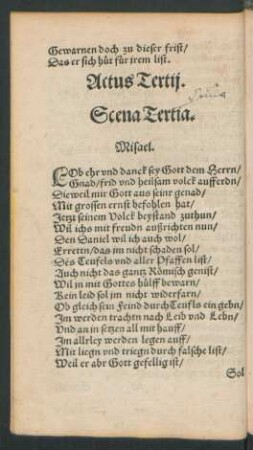 Gewarnen doch zu dieser frist/
Das er sich hüt für irem list.
Actus Tertij.
Scena Tertia.
Misael.
LOb ehr vnd danck sey Gott dem Herrn/
Gnad/frid vnd heilsam volck auff erdn/
Dieweil mit Gott aus seinr genad/
Mit grossen ernst befohlen hat/
Jetzt seinem Volck beystand zuthun/
Wil ichs mit freudn außrichten nun/
Den Daniel wil ich auch wol/
Errettn/das im nicht schaden sol/
Des Teufels vnd aller Pfaffen list/
Auch nicht das gantz Römisch genist/
Wil jn mit Gottes hülff bewarn/
Kein leid sol jm nicht widerfarn/
Ob gleich sein Feind durch Teufls eingebn/
Im werden trachtn nach Leib vnd Lebn/
Vnd an in setzen all mit hauff/
Im allrley werden legen auff/
Mit liegn vnd triegn durch falsche list/
Weil er abr Gott gefellig ist/
Sol